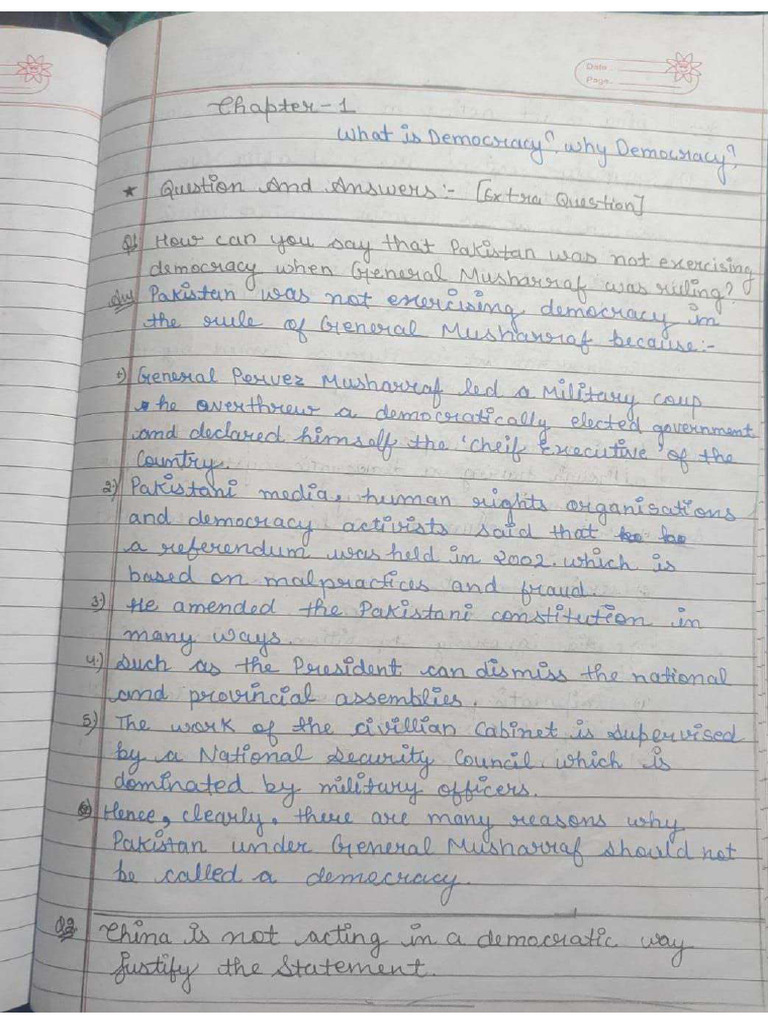 Date
Page
Chapter-1
What is Democracy? Why Democracy?
★ Question And Answers:- [Extra Question]
Q1 How can you say that Pakistan was not exercising
democracy when General Musharraf was ruling?
Ans Pakistan was not exercising democracy in
the rule of General Musharraf because:-
1) General Pervez Musharraf led a Military coup
he overthrew a democratically elected government
and declared himself the 'Cheif Executive' of the
Country.
2) Pakistani media, human rights organisations
and democracy activists said that
a referendum was held in 2002. which is
based on malpractices and fraud.
3) He amended the Pakistani constitution in
many ways.
4) Such as the President can dismiss the national
and provincial assemblies.
5) The work of the civillian Cabinet is supervised
by a National Security Council which is
dominated by military officers.
6) Hence, clearly, there are many reasons why
Pakistan under General Musharraf should not
be called a democracy.
Q2 China is not acting in a democratic way
Justify the Statement.